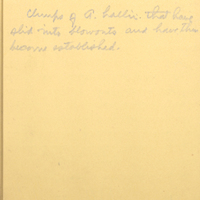 Clumps of A. hallii that have
slid into blowouts and have then
become established.